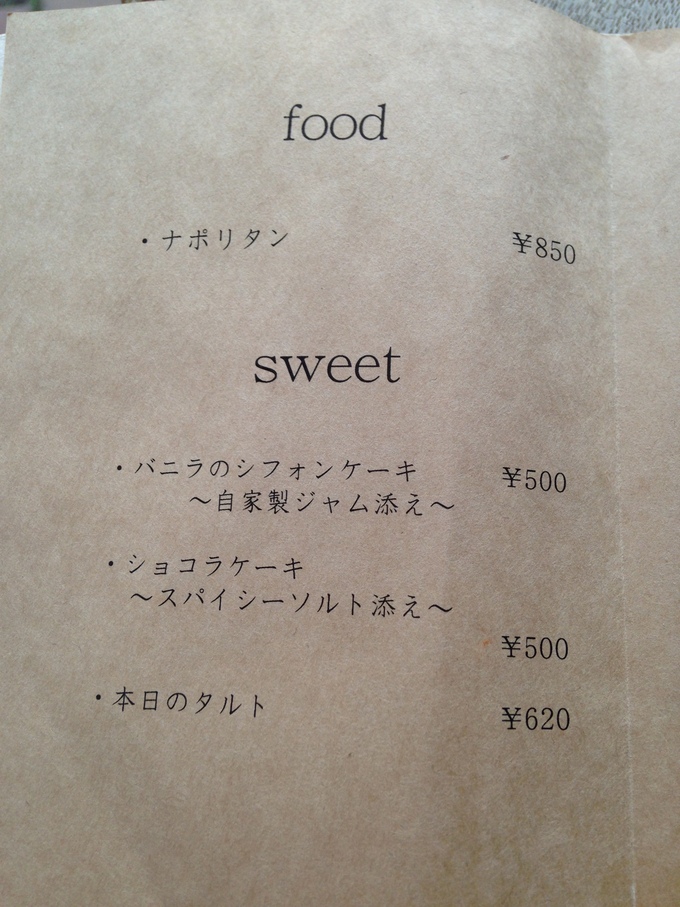 food
・ナポリタン ¥850
sweet
・バニラのシフォンケーキ ¥500
～自家製ジャム添え～
・ショコラケーキ
～スパイシーソルト添え～
¥500
・本日のタルト ¥620